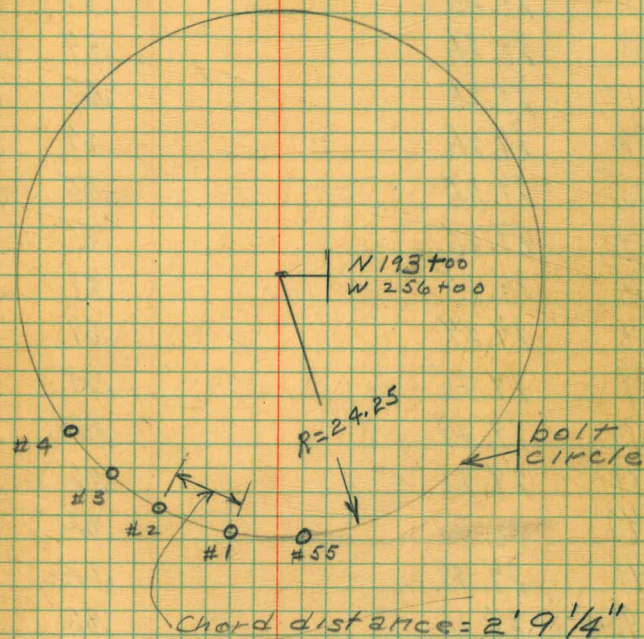 N 193+00
W 256+00
R=24.25
bolt
circle
#4
#3
#2
#1
#55
chord distance = 2' 9 1/4"